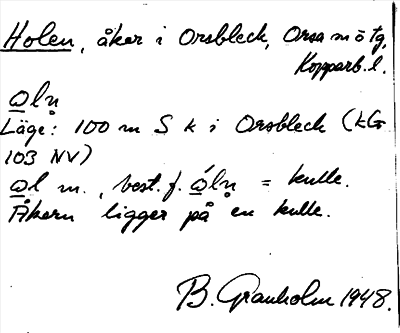 Holen, åker i Orsbleck, Orsa m ö tg,
Kopparb. l.
ωln̥
Läge: 100 m S k i Orsbleck (kG
103 NV)
ωl m., best. f. ώln̥ = kulle.
Åkern ligger på en kulle.
B. Granholm 1948.